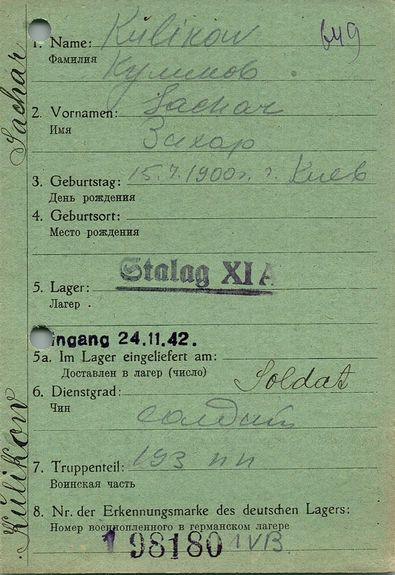 1. Name: Kulikow
649
Фамилия
Куликов
2. Vornamen: Sachar
Имя
Захар
3. Geburtstag: 15.7.1900г. г. Киев
День рождения
4. Geburtsort:
Место рождения
Stalag XI A
5. Lager:
Лагер
ingang 24.11.42.
5a. Im Lager eingeliefert am:
Доставлен в лагер (число)
Soldat
6. Dienstgrad:
Чин
солдат
7. Truppenteil: 193 пп
Воинская часть
8. Nr. der Erkennungsmarke des deutschen Lagers:
Номер военнопленного в германском лагере
198180 IVB
Kulikow Sachar